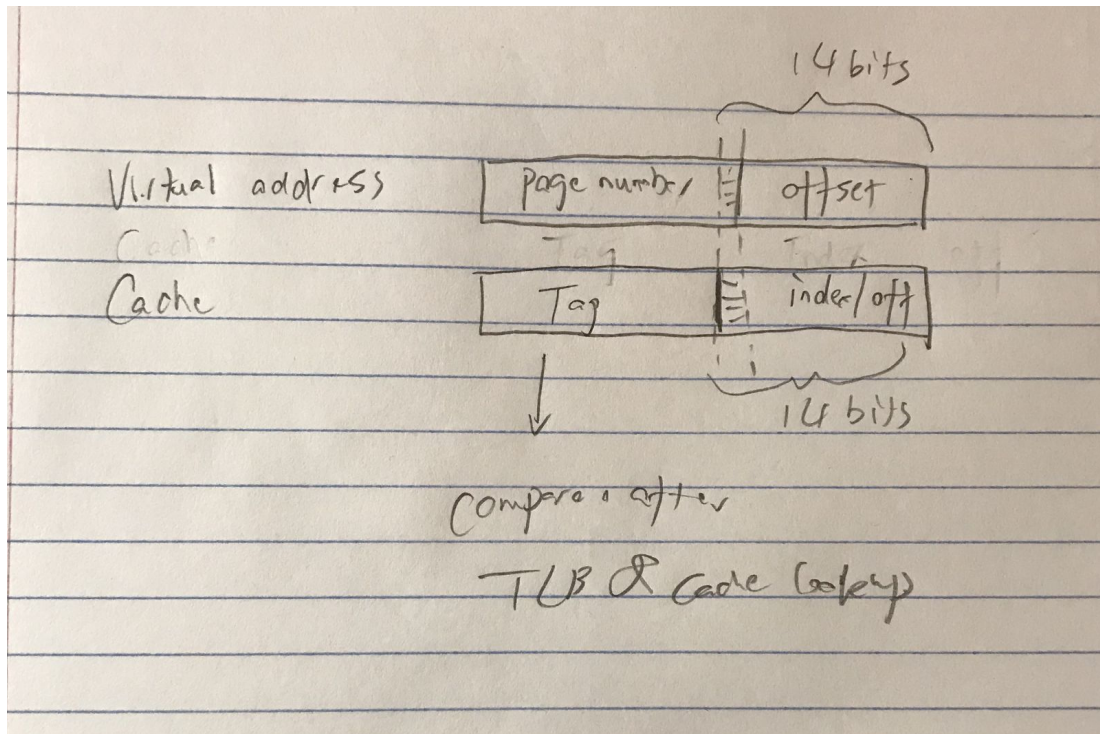 14 bits
Virtual address page number offset
Cache Tag Index off
Cache Tag index/off
14 bits
Compare after
TLB & Cache Lookup